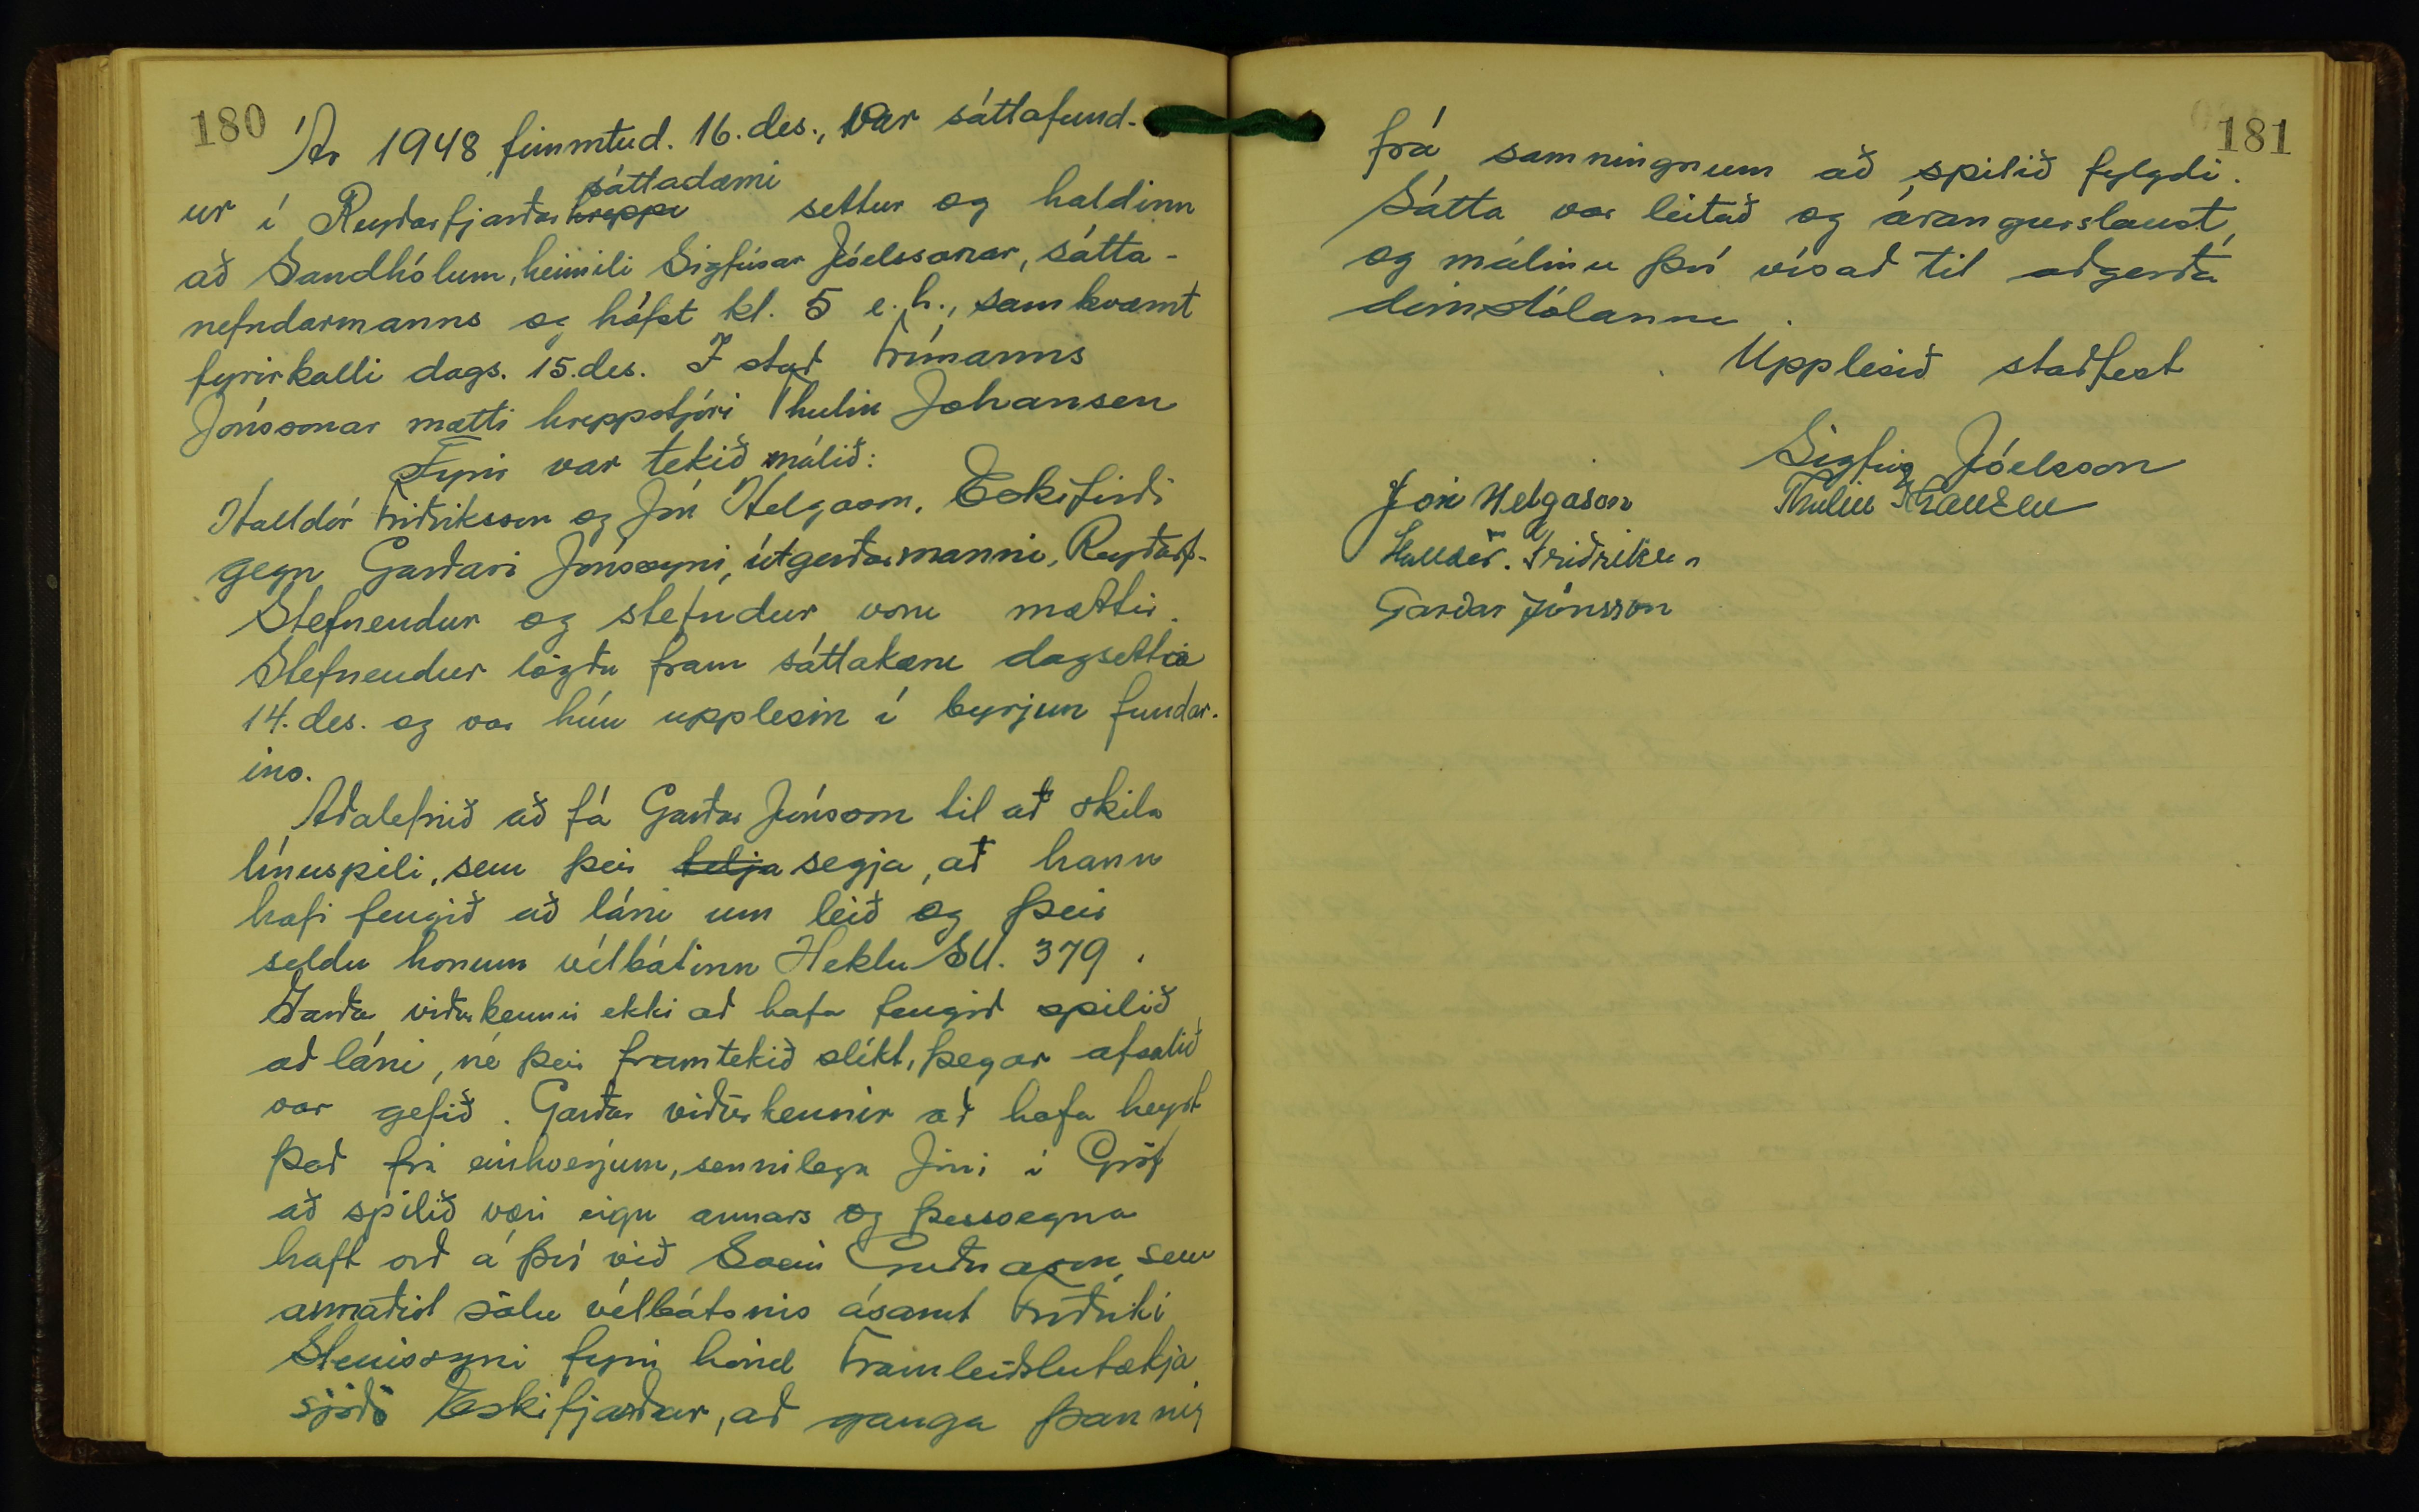 180
Ár 1948 fimmtud. 16. des., var sáttafund-
ur í Reyðarfjarðar hreppi sáttadæmi settur og haldinn
að Sandhólum, heimili Sigfúsar Jóelssonar, sátta-
nefndarmanns og hófst kl. 5 e.h., samkvæmt
fyrirkalli dags. 15. des. Í stað Frímanns
Jónssonar mætti hreppstjóri Thulin Johansen
Fyrir var tekið málið:
Halldór Friðriksson og Jón Helgason, Eskifirði
gegn Garðari Jónssyni, útgerðarmanni, Reyðarf-
Stefnendur og stefndur voru mættir.
Stefnendur lögðu fram sáttakæru dagsetta
14. des. og var hún upplesin í byrjun fundar-
ins.
Aðalefnið að fá Garðar Jónsson til að skila
línuspili, sem þeir telja segja, að hann
hafi fengið að láni um leið og þeir
seldu honum vélbátinn Heklu SU. 379.
Garðar viðurkennir ekki að hafa fengið spilið
að láni, né þeir framtekið slíkt, þegar afsalið
var gefið. Garðar viðurkennir að hafa heyrt
það frá einhverjum, sennilega Jóni í Gröf
að spilið væri eign annars og þessvegna
haft orð á því við Svein Guðnason, sem
annaðist sölu vélbátsins ásamt Friðriki
Steinssyni fyrir hönd Framleiðslutækja
sjóðs Eskifjarðar, að ganga þannig
181
frá samningnum að spilið fylgdi.
Sátta var leitað og árangurslaust,
og málinu því vísað til aðgerða
dómstólanna.
Upplesið staðfest
Sigfús Jóelsson
Jón Helgason Thulin Johansen
Halldór Friðriksson
Garðar Jónsson